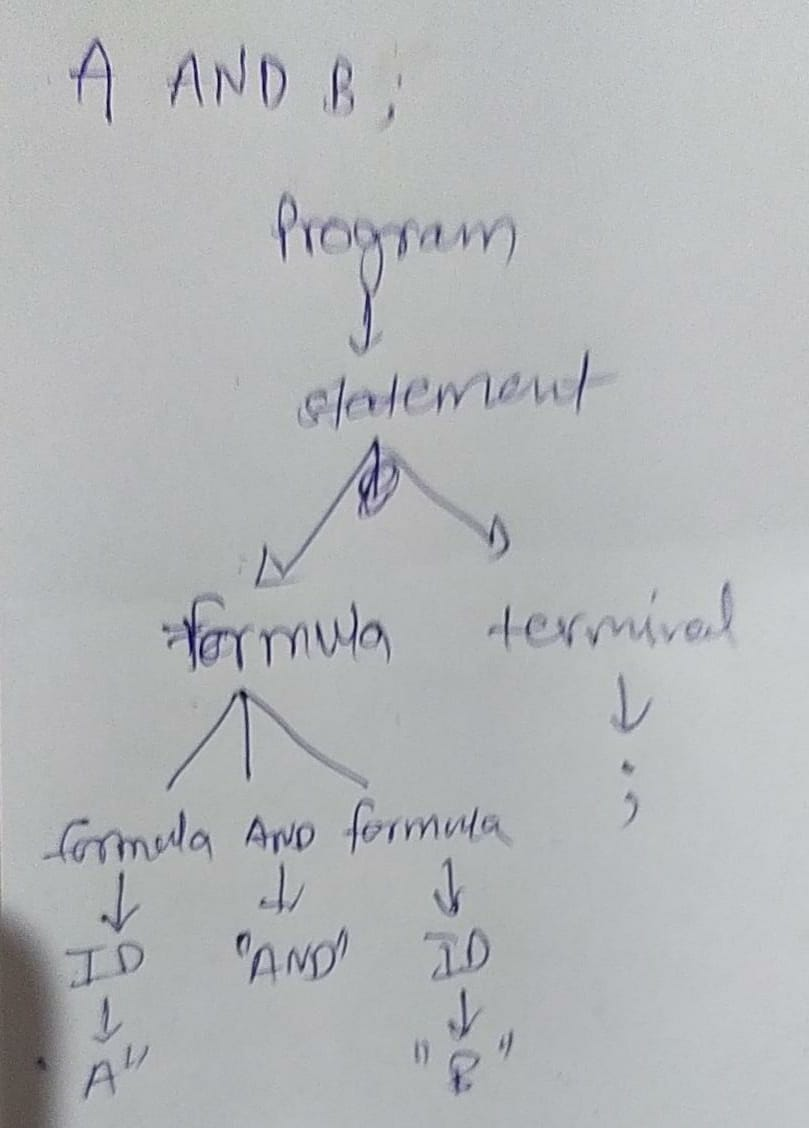 A AND B ;
Program
statement
formula terminal
;
formula AND formula
ID "AND" ID
A" "B"